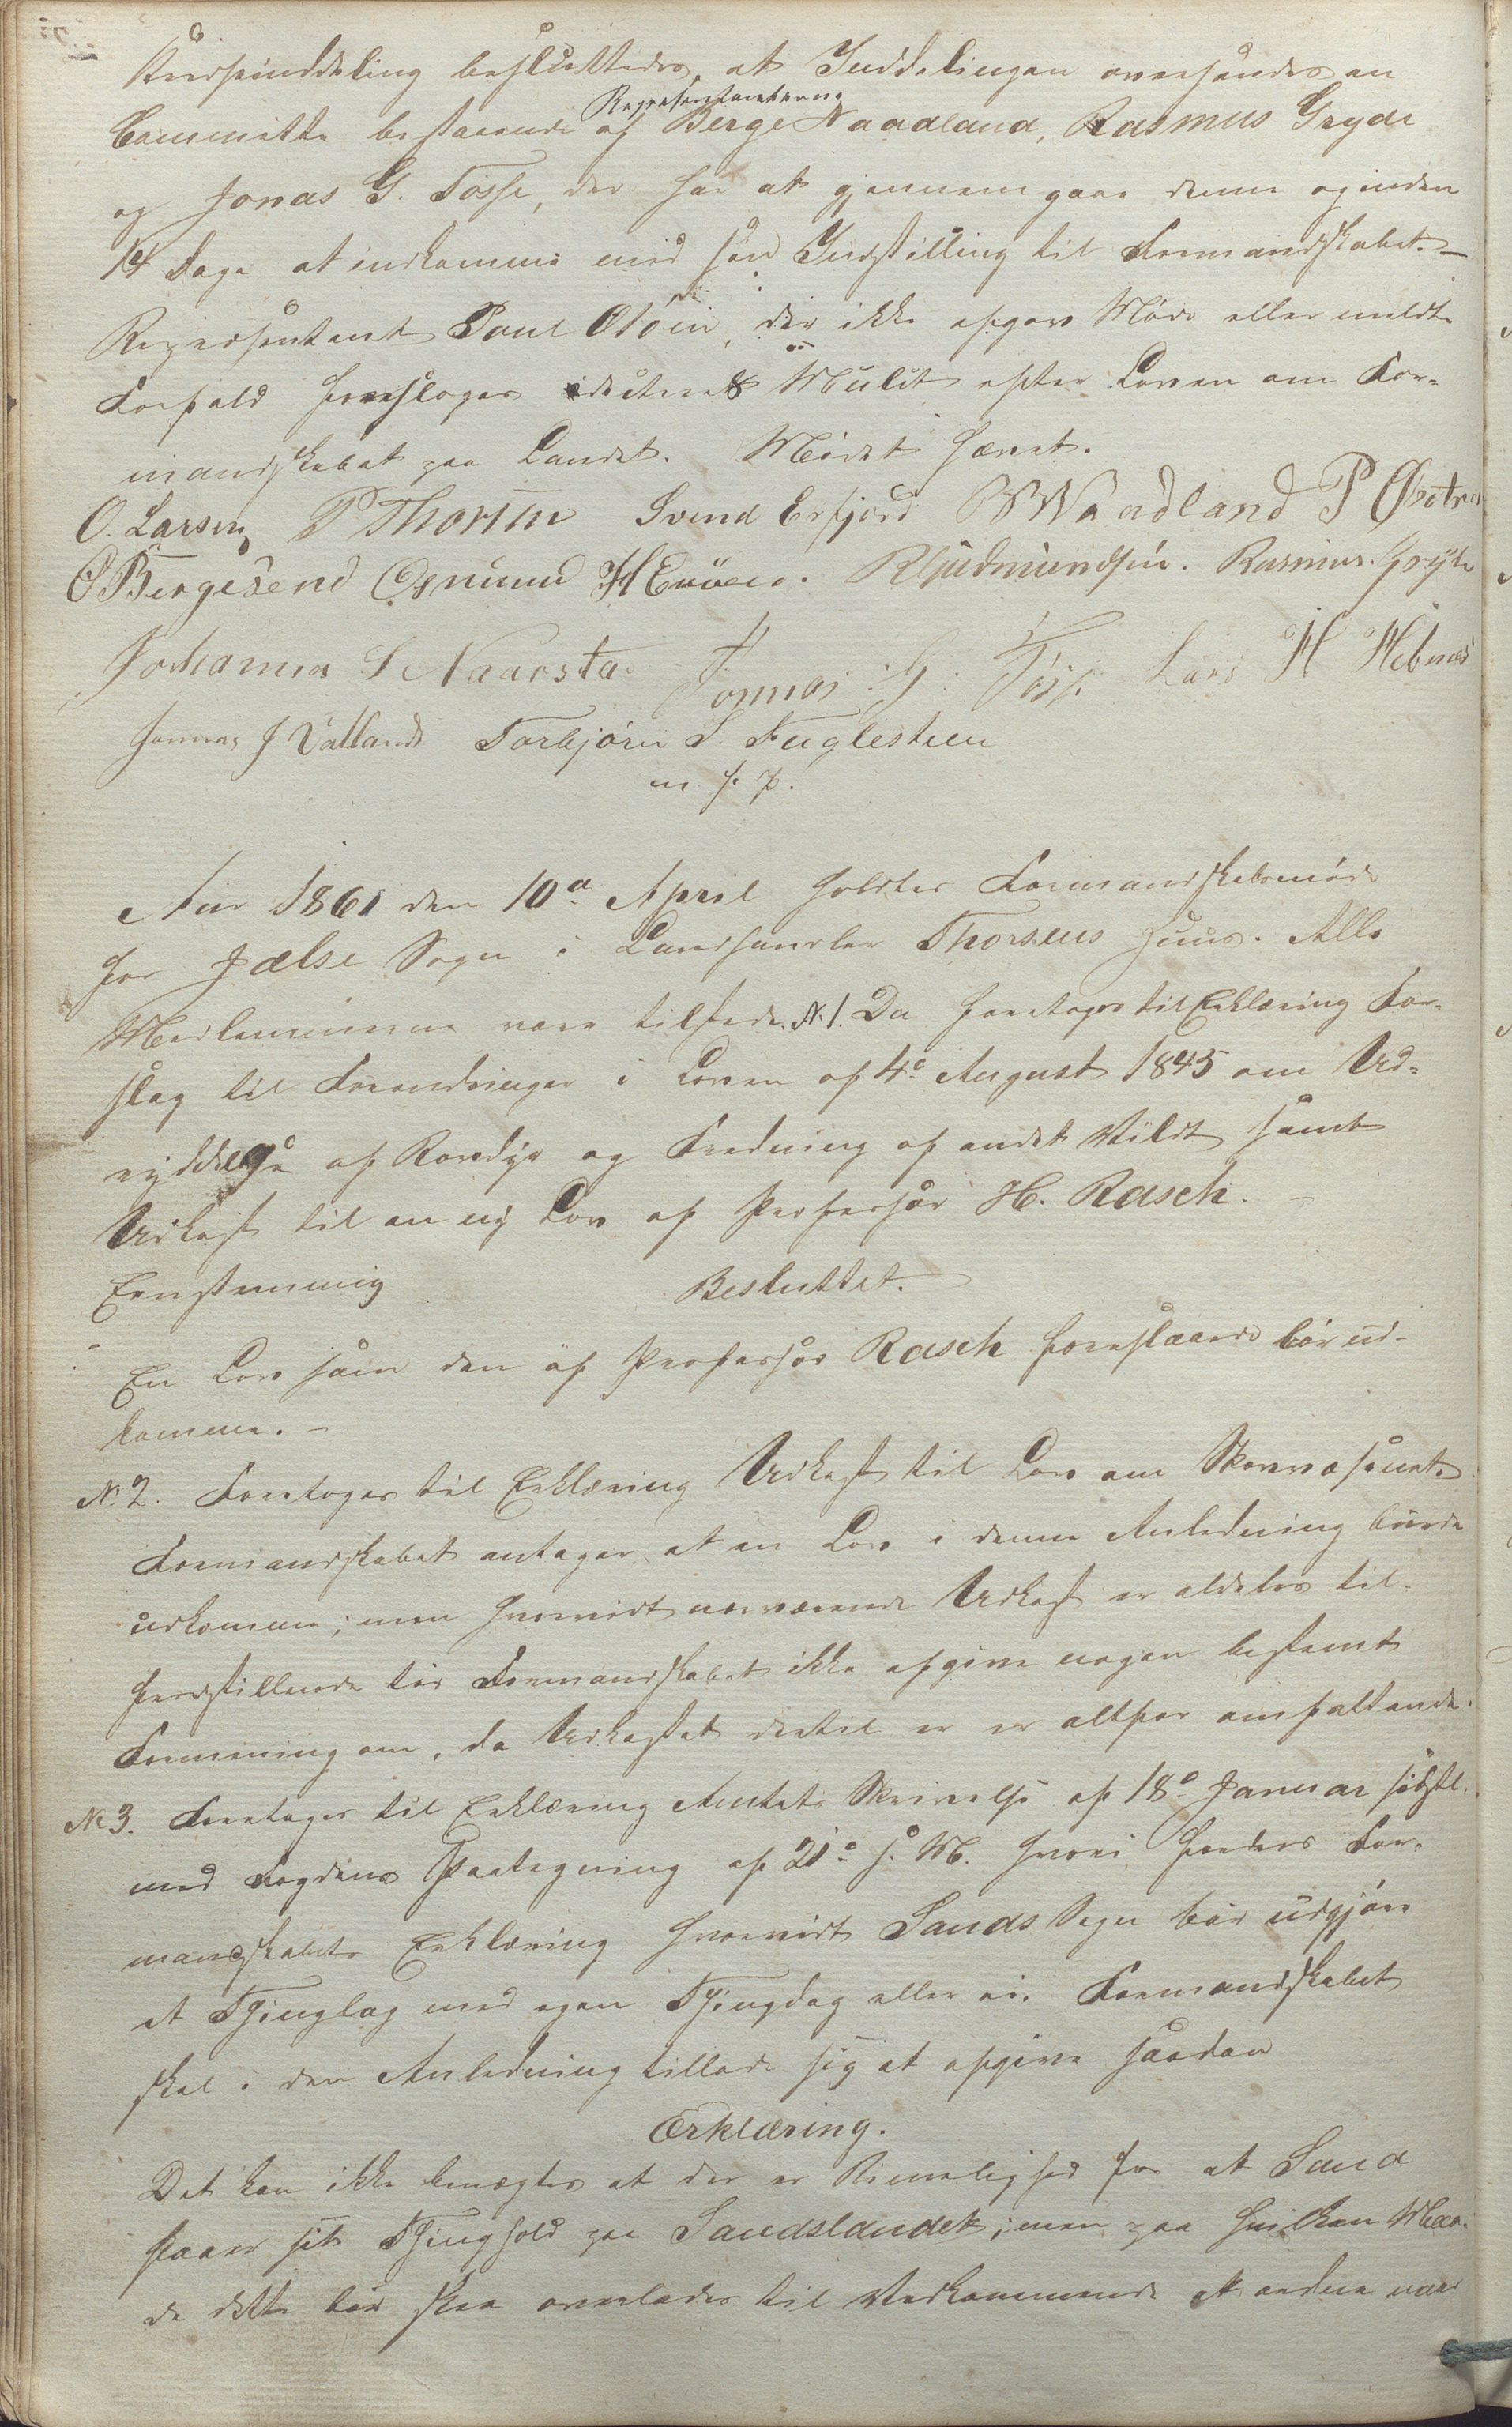 Kredsinddeling besluttedes, at Inddelingen oversendes en
Repræsentanterne
Committe bestaaende af Berge Naadland, Rasmus Gryde
og Jonas G. Tøsse, der har at gjennemgaae denne og inden
14 Dage at indkomme med sin Indstilling til Formandskabet. –
Repræsentant Poul Oløen, der ikke afgav Møde eller meldte
Forfald foresloges idømt Mulct efter Loven om For-
mandskabet paa Landet. Mødet hævet.
O. Larsen P Thorsen Svend Erfjord B W Naadland P Østrem
O Bergesend Osmund H Erøen. R Gudmundsen. Rasmus. Gryde
Johannes S Naarsta Jonnas . G . Tøsse Lars H Hebnes
Jonnas J Vatland Torbjørn S. Fuglesteen
m. f. P.
Aar 1861 den 10de April holdtes Formandskabsmøde
for Jælse Sogn i Landhandler Thorsens Huus. Alle
Medlemmerne vare tilstede. No 1. Da foretoges til Erklæring For-
slag til Forandringer i Loven af 4de August 1845 om Ud-
ryddelse af Rovdyr og Fredning af andet Vildt samt
Udkast til en ny Lov af Professor H. Rasch. –
Eenstemmig Besluttet.
En Lov som den af Professor Rasch foreslaaede bør ud-
komme. –
No 2. Foretoges til Erklæring Udkast til Lov om Skovvæsenet.
Formandskabet antager at en Lov i denne Anledning burde
udkomme; men hvorvidt nærværende Udkast er aldeles til-
fredsstillende tør Formandskabet ikke afgive nogen bestemt
Formening om, da Udkastet dertil er er altfor omfattende.
No 3. Foretoges til Erklæring Amtets Skrivelse af 18de Januar sidstl.
med Fogdens Paategning af 21de s. M. hvori fordres For-
mandskabets Erklæring hvorvidt Sands Sogn bør udgjøre
et Thinglag med egen Thingdag eller ei. Formandskabet
skal i den Anledning tillade sig at afgive saadan
Erklæring.
Det kan ikke benægtes at der er Rimelighed for at Sand
faaer sit Thinghold paa Sandslandet; men paa hvilken Maa-
de dette bør skee overlades til Vedkommende at ordne naar